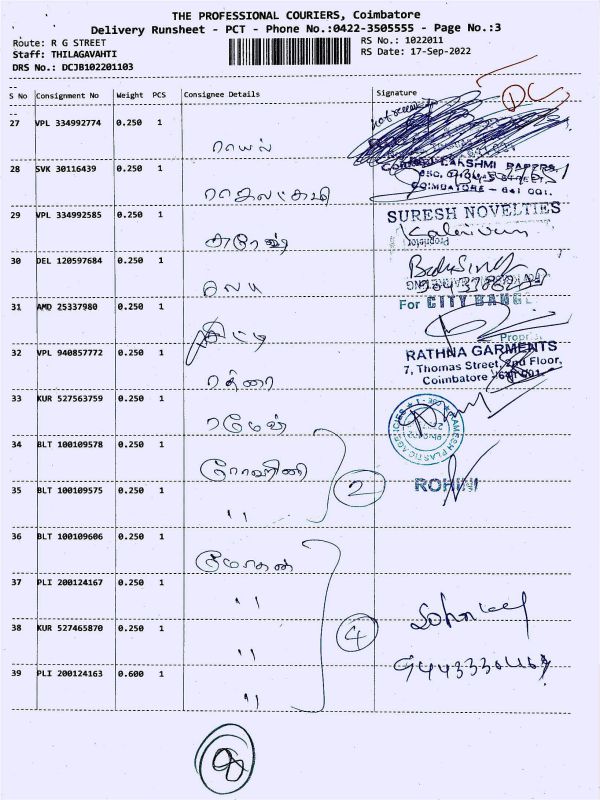 THE PROFESSIONAL COURIERS, Coimbatore
Delivery Runsheet - PCT - Phone No.:0422-3505555 - Page No.:3
Route: R G STREET
RS No.: 1022011
Staff: THILAGAVAHTI
RS Date: 17-Sep-2022
DRS No.: DCJB102201103
S No Consignment No Weight PCS Consignee Details Signature
DC
27 VPL 334992774 0.250 1
ராயல்
28 SVK 30116439 0.250 1
LAKSHMI PAPERS
COIMBATORE - 641 001.
ராஜலட்சுமி
29 VPL 334992585 0.250 1
SURESH NOVELTIES
Proprietor
சுரேஷ்
30 DEL 120597684 0.250 1
31 AMD 25337980 0.250 1
For CITY BANGL
சிட்டி
Propri
32 VPL 940857772 0.250 1
RATHNA GARMENTS
7, Thomas Street, 2nd Floor,
Coimbatore - 641 001.
ரத்னா
33 KUR 527563759 0.250 1
RAMESH PLASTIC AGENCIES
ரமேஷ்
34 BLT 100109578 0.250 1
ரோஹிணி
35 BLT 100109575 0.250 1
" 2
ROHINI
36 BLT 100109606 0.250 1
37 PLI 200124167 0.250 1
"
38 KUR 527465870 0.250 1
" 4
39 PLI 200124163 0.600 1
"